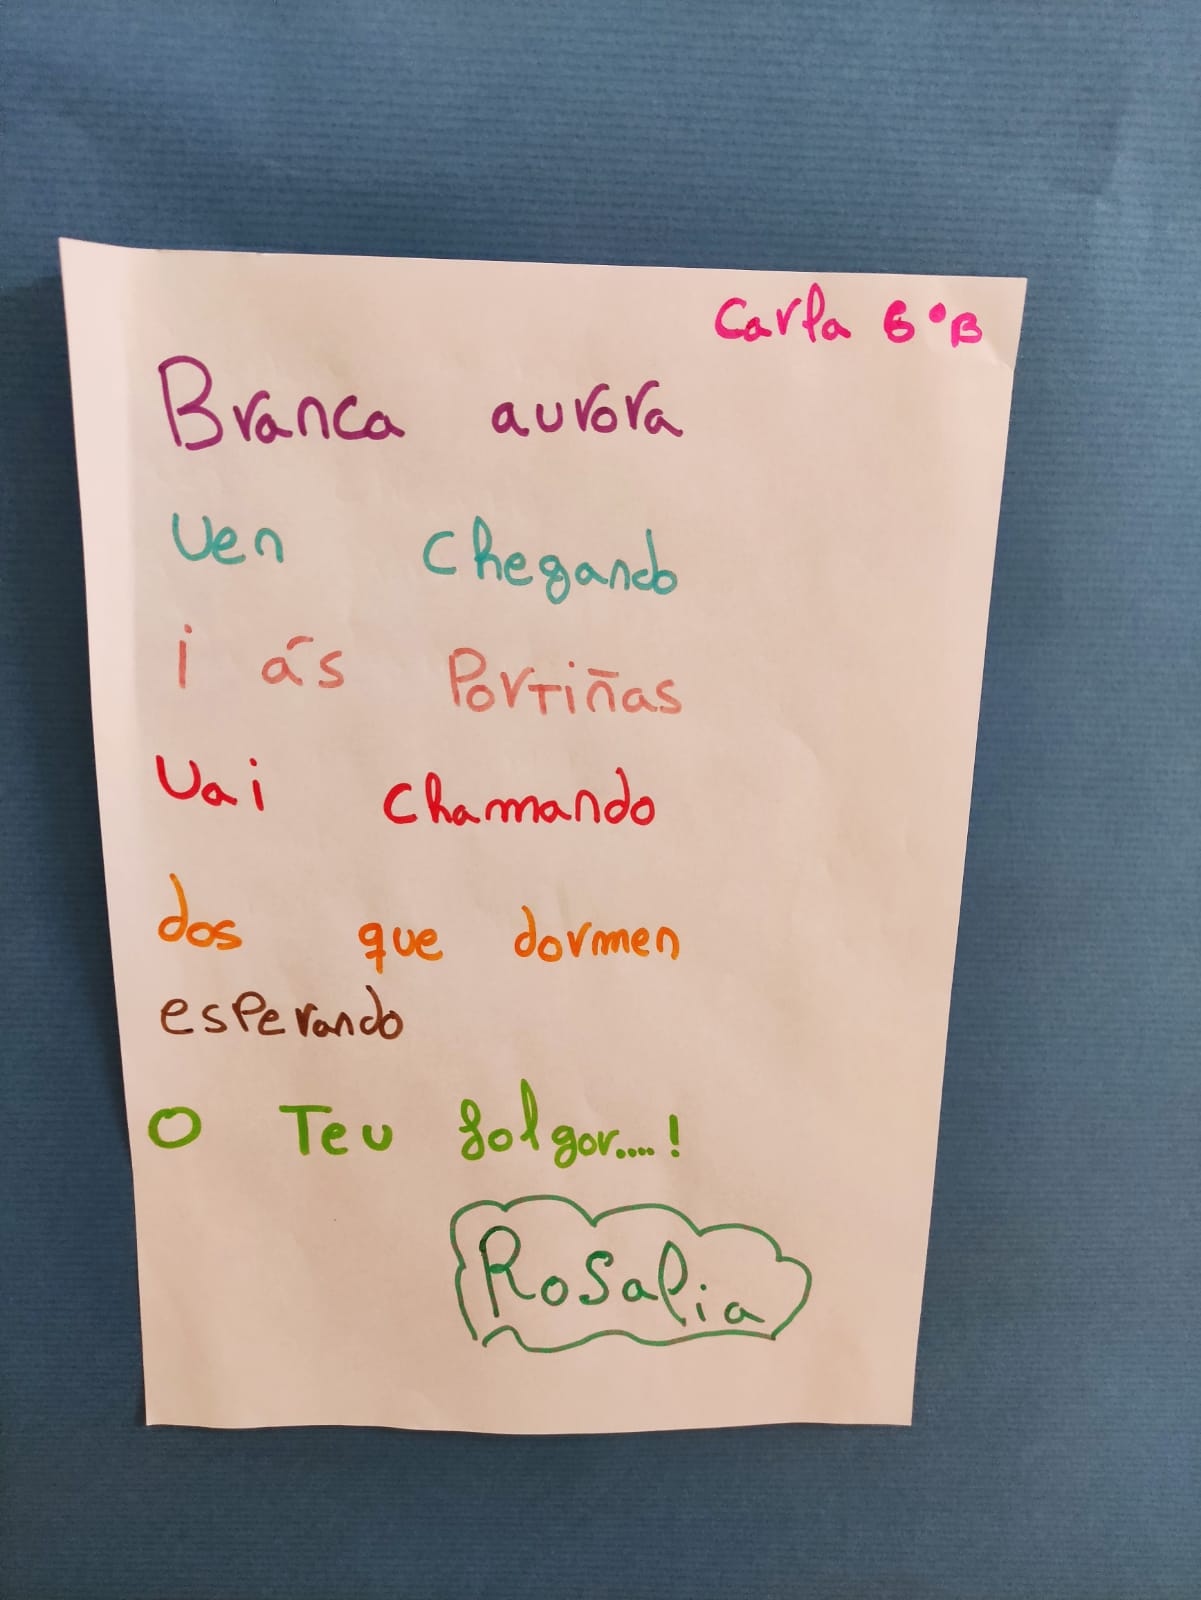 Carla 6ºB
Branca aurora
ven chegando
i ás Portiñas
Vai chamando
dos que dormen
esperando
O Teu folgor....!
Rosalia